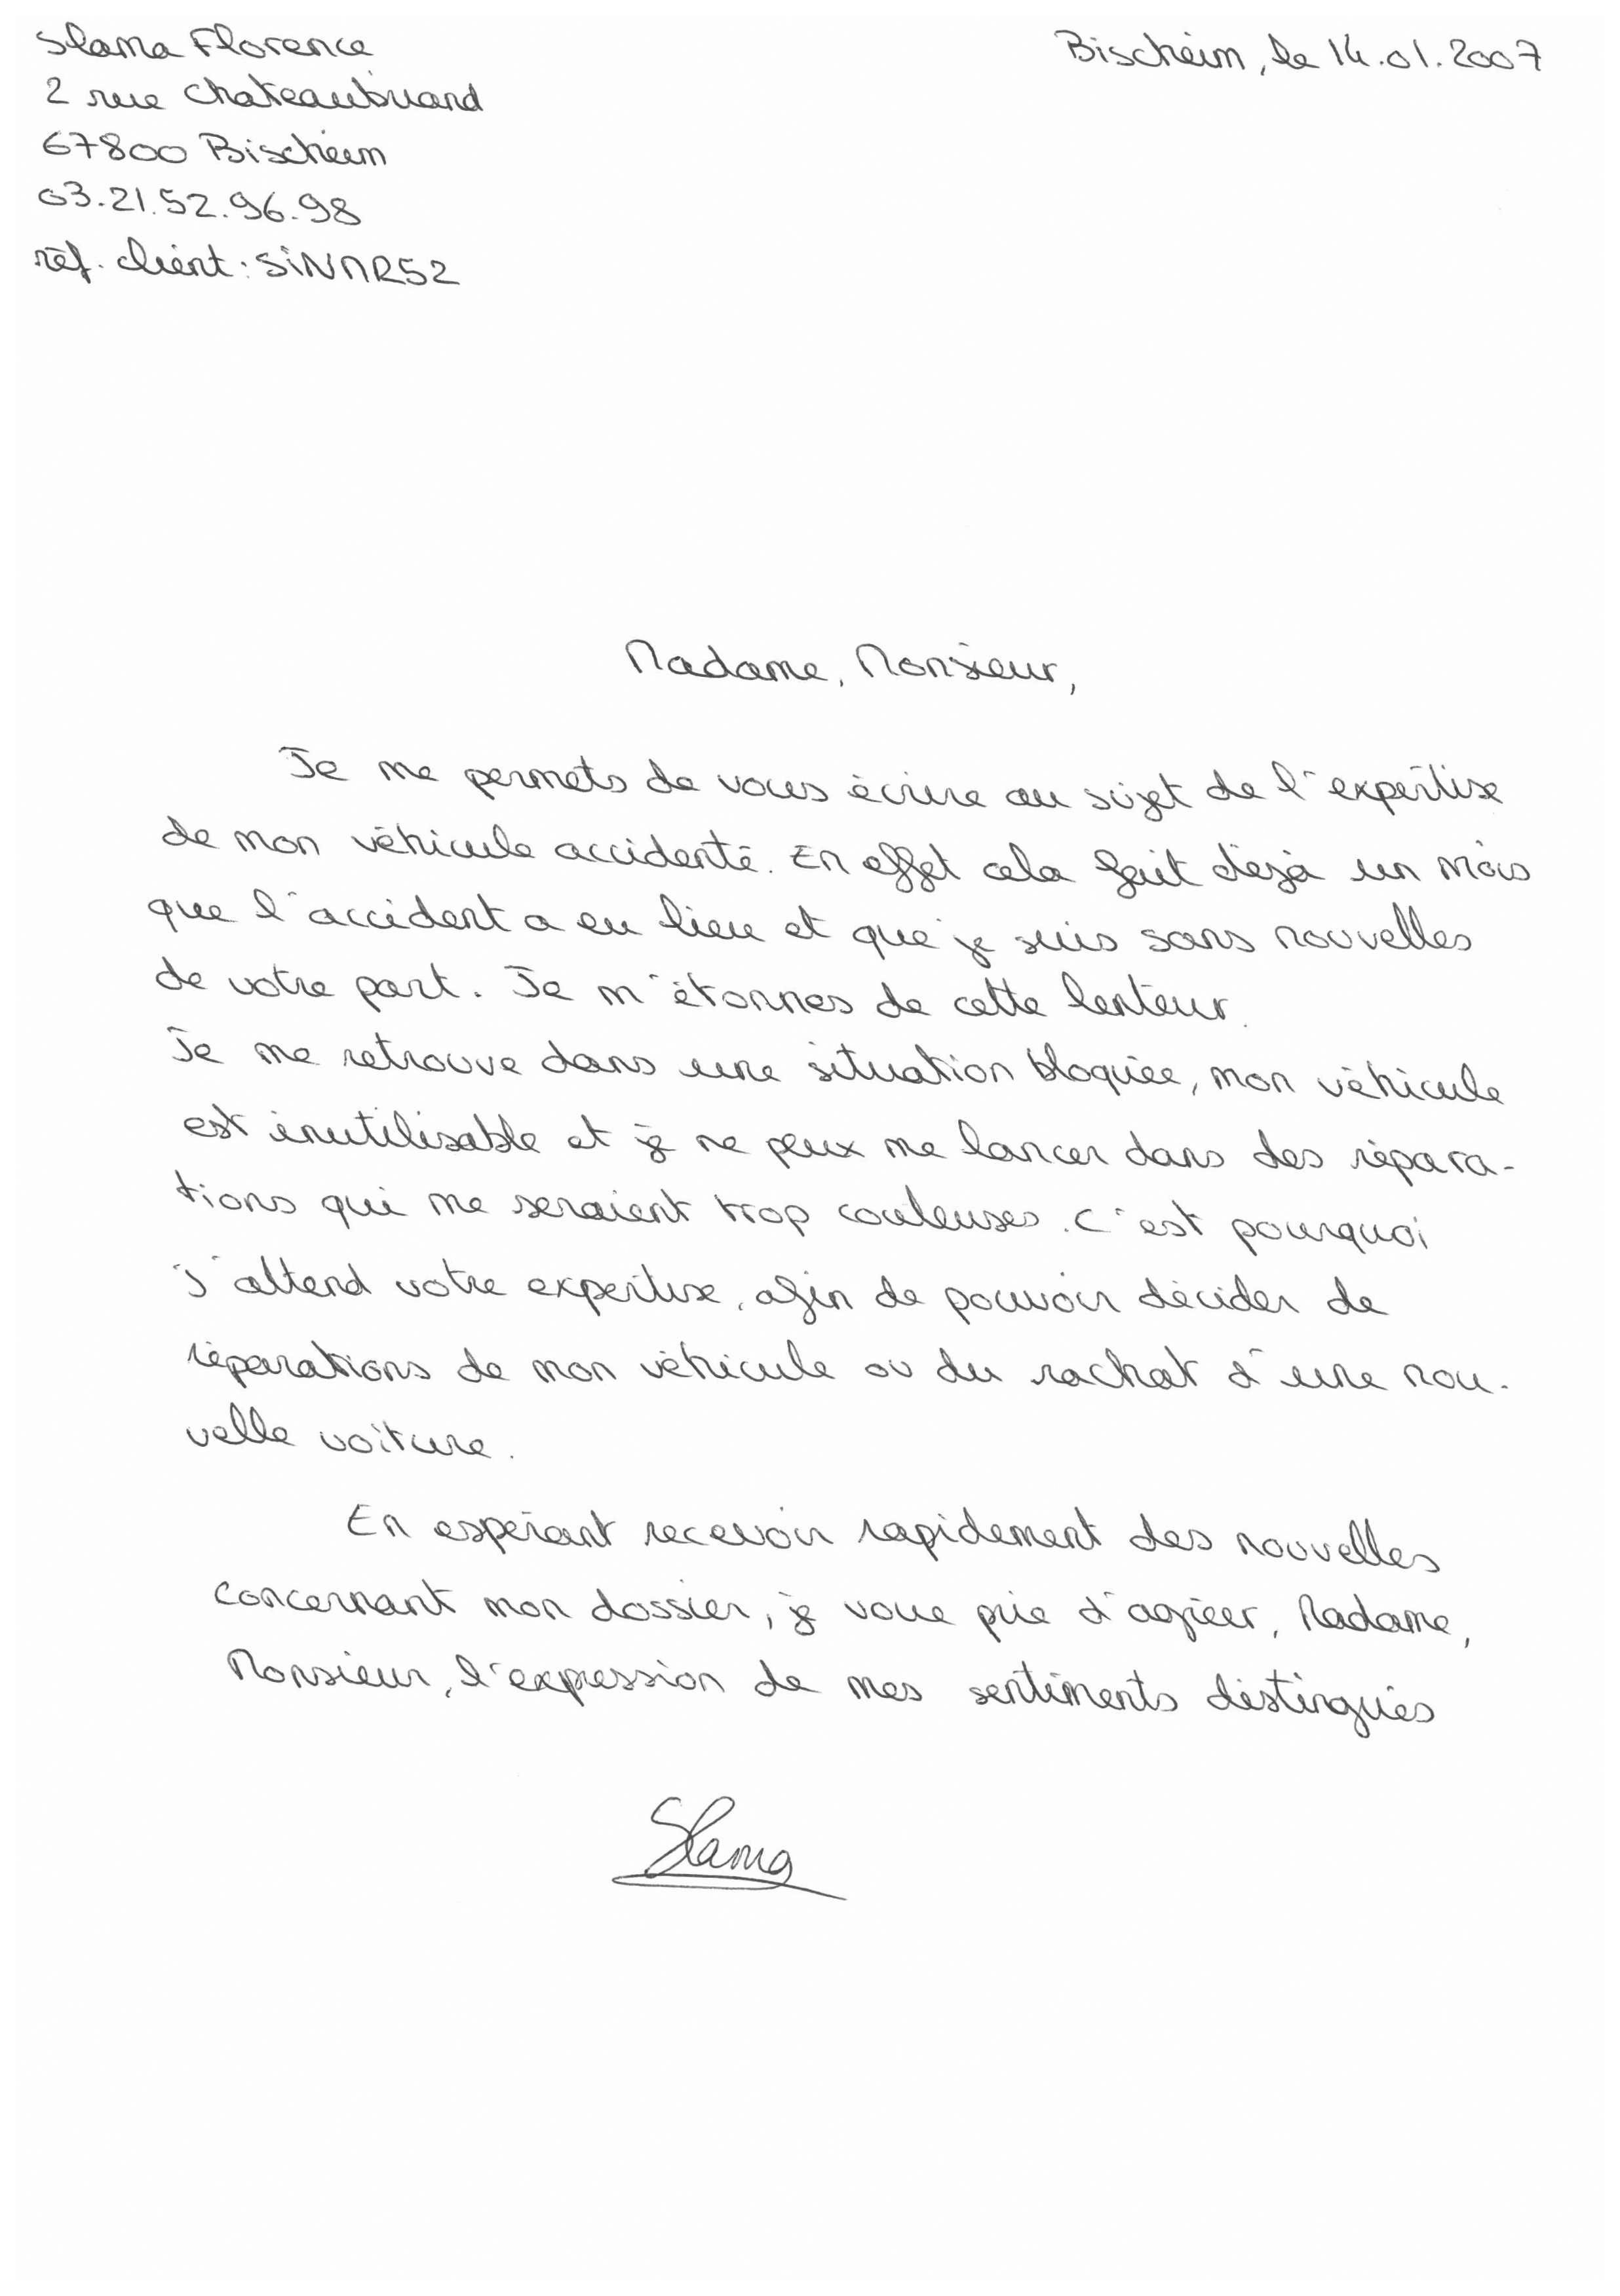 Slama Florence
Bischeim, le 14.01.2007
2 rue chateaubriand
67800 Bischeim
03.21.52.96.98
réf. client : SINMR52
Madame, Monsieur,
Je me permets de vous écrire au sujet de l'expertise
de mon véhicule accidenté. En effet cela fait déjà un mois
que l'accident a eu lieu et que je suis sans nouvelles
de votre part. Je m'étonnes de cette lenteur.
Je me retrouve dans une situation bloquée, mon véhicule
est inutilisable et je ne peux me lancer dans des répara-
tions qui me seraient trop couteuses. C'est pourquoi
j'attend votre expertise, afin de pouvoir décider de
réparations de mon véhicule ou du rachat d'une nou-
velle voiture.
En espérant recevoir rapidement des nouvelles
concernant mon dossier, je voue prie d'agréer, Madame,
Monsieur, l'expression de mes sentiments distingués
Slama